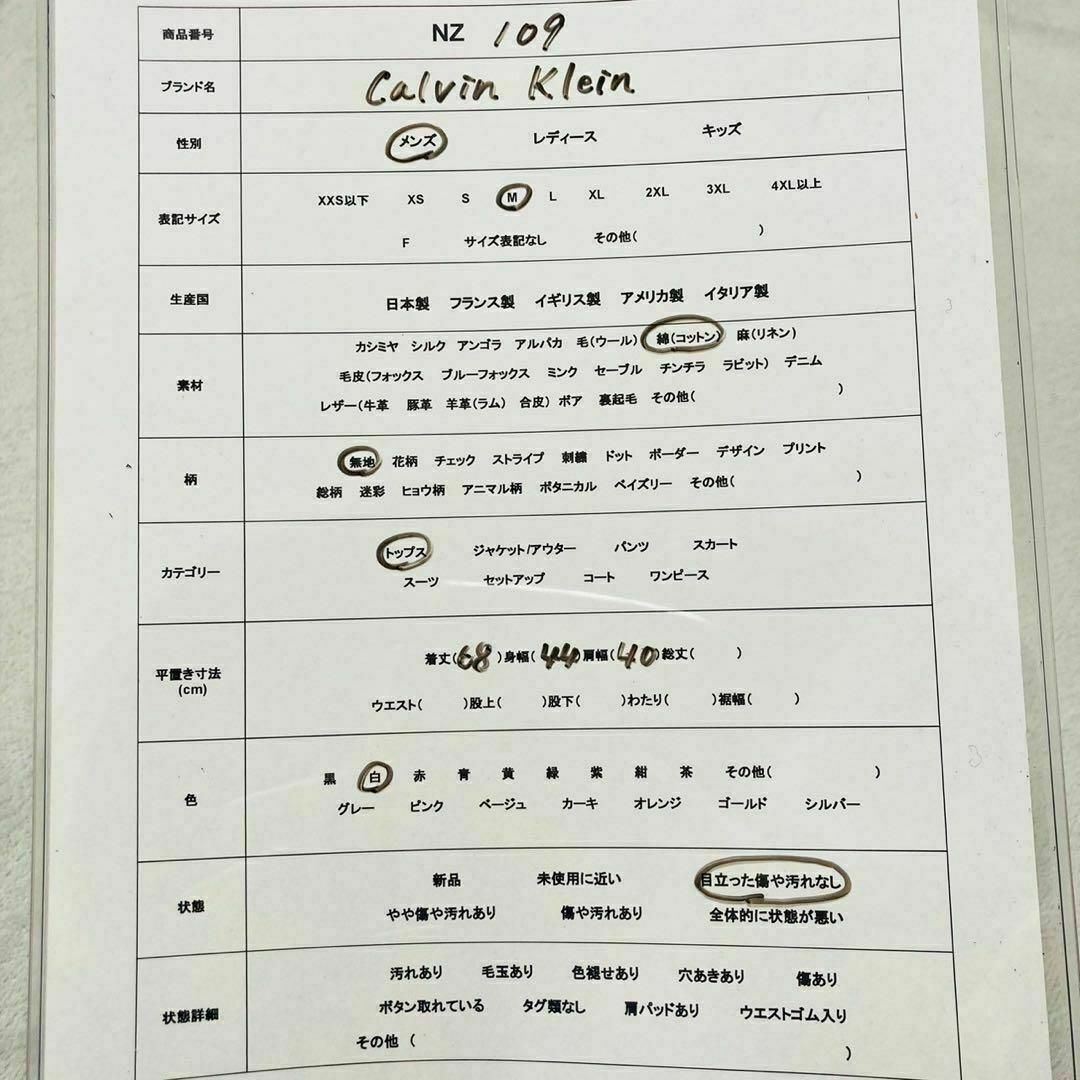 商品番号 NZ 109
ブランド名 Calvin Klein
性別 メンズ レディース キッズ
表記サイズ XXS以下 XS S M L XL 2XL 3XL 4XL以上
F サイズ表記なし その他( )
生産国 日本製 フランス製 イギリス製 アメリカ製 イタリア製
素材 カシミヤ シルク アンゴラ アルパカ 毛(ウール) 綿(コットン) 麻(リネン)
毛皮(フォックス ブルーフォックス ミンク セーブル チンチラ ラビット) デニム
レザー(牛革 豚革 羊革(ラム) 合皮) ボア 裏起毛 その他( )
柄 無地 花柄 チェック ストライプ 刺繍 ドット ボーダー デザイン プリント
総柄 迷彩 ヒョウ柄 アニマル柄 ボタニカル ペイズリー その他( )
カテゴリー トップス ジャケット/アウター パンツ スカート
スーツ セットアップ コート ワンピース
平置き寸法 (cm) 着丈(68)身幅(44)肩幅(40)総丈( )
ウエスト( )股上( )股下( )わたり( )裾幅( )
色 黒 白 赤 青 黄 緑 紫 紺 茶 その他( )
グレー ピンク ベージュ カーキ オレンジ ゴールド シルバー
状態 新品 未使用に近い 目立った傷や汚れなし
やや傷や汚れあり 傷や汚れあり 全体的に状態が悪い
状態詳細 汚れあり 毛玉あり 色褪せあり 穴あきあり 傷あり
ボタン取れている タグ類なし 肩パッドあり ウエストゴム入り
その他 ( )